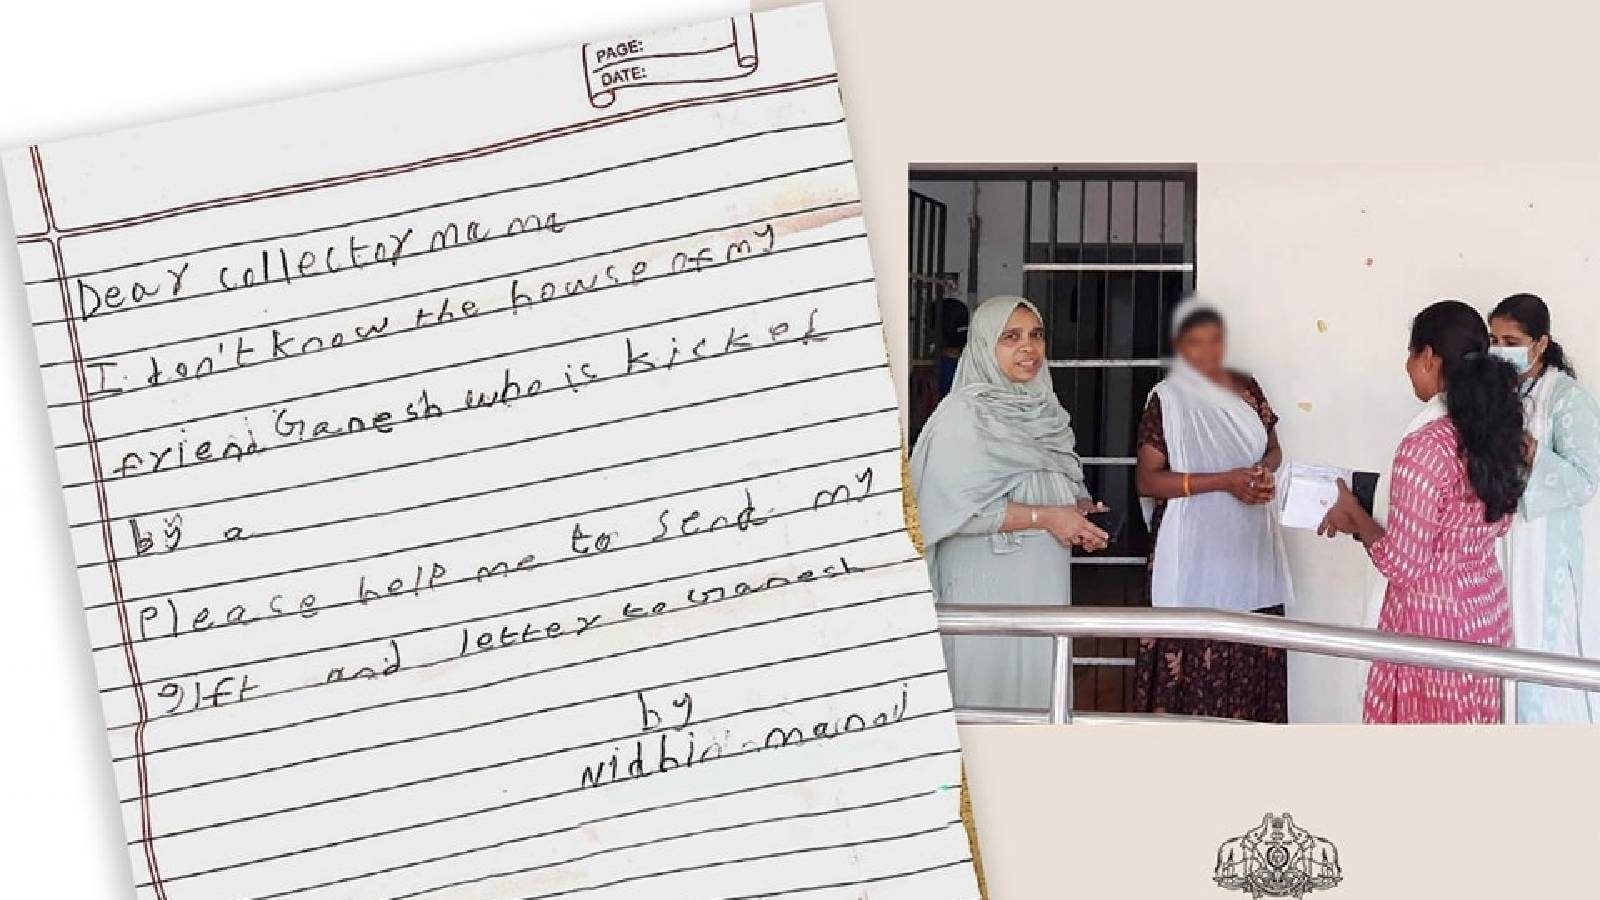 PAGE:
DATE:
Dear collector mama
I don't know the howse of my
friend Ganesh who is kicked
by a
Please help me to send my
gift and letter to Ganesh
by
Nidhin manoj